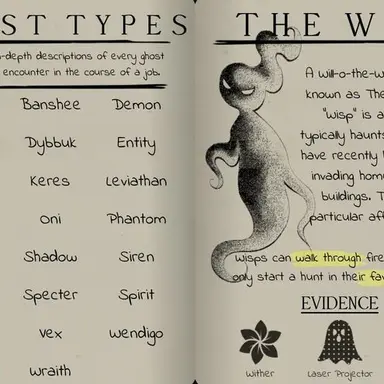 ST TYPES
-depth descriptions of every ghost
encounter in the course of a job.
Banshee Demon
Dybbuk Entity
Keres Leviathan
Oni Phantom
Shadow Siren
Specter Spirit
Vex Wendigo
Wraith
THE W
A will-o-the-w
known as The
"wisp" is a
typically haunts
have recently
invading hom
buildings. T
particular aff
Wisps can walk through fire
only start a hunt in their fav
EVIDENCE
Wither Laser Projector